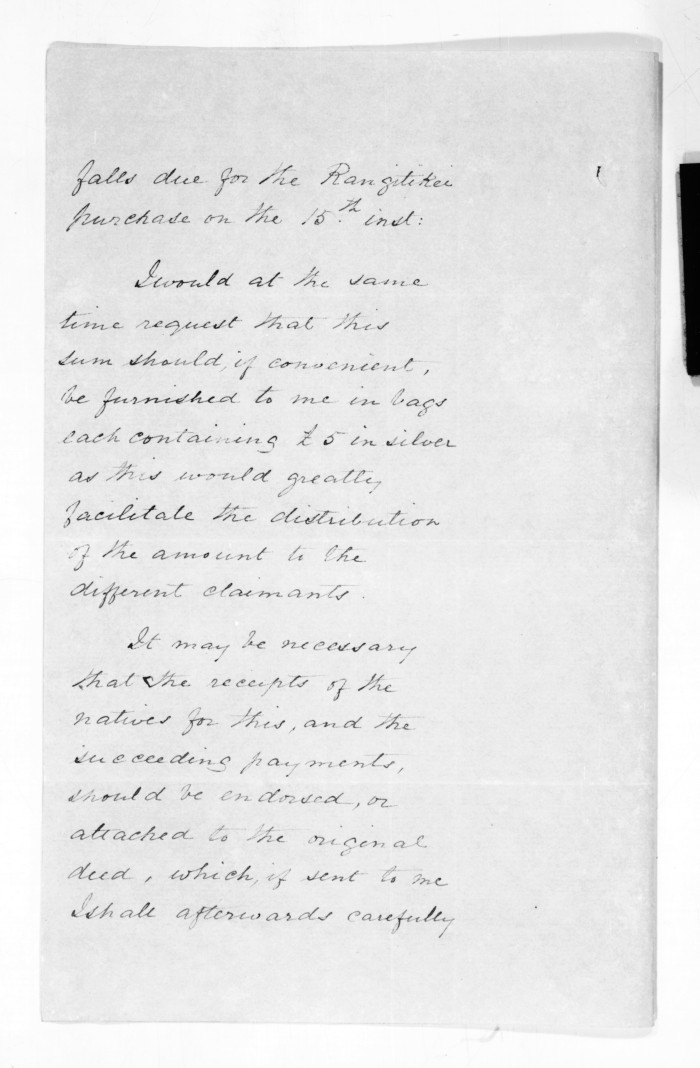 falls due for the Rangitikei
purchase on the 15.th inst:
I would at the same
time request that this
sum should, if convenient,
be furnished to me in bags
each containing £5 in silver
as this would greatly
facilitate the distribution
of the amount to the
different claimants.
It may be necessary
that the receipts of the
natives for this, and the
succeeding payments,
should be endorsed, or
attached to the original
deed, which, if sent to me
I shall afterwards carefully